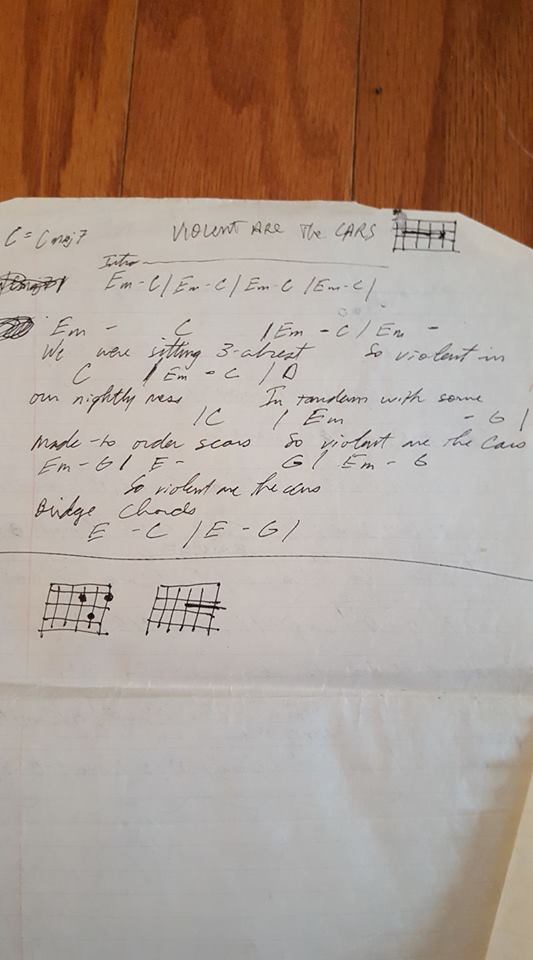 C = Cmaj7 VIOLENT ARE The CARS
Intro
Em - C | Em - C | Em - C | Em - C |
Em - C | Em - C | Em -
We were sitting 3-abrest So violent in
C | Em - C | D
our nightly ness In tandem with some
| C | Em - G |
made-to order scars So violent are the cars
Em - G | E - G | Em - G
So violent are the cars
Bridge Chords
E - C | E - G |